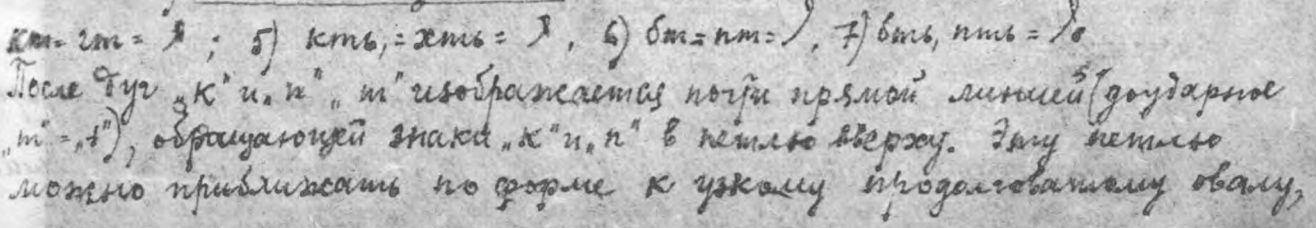 кт = гт = ; 5) кть, = хть = , 6) бт = пт = , 7) бть, пть =
После дуг „к“ и „п“ „т“ изображается почти прямой линией (доударное
„т“ = „t“), обращающей знаки „к“ и „п“ в петлю вверху. Эту петлю
можно приближать по форме к узкому продолговатому овалу,